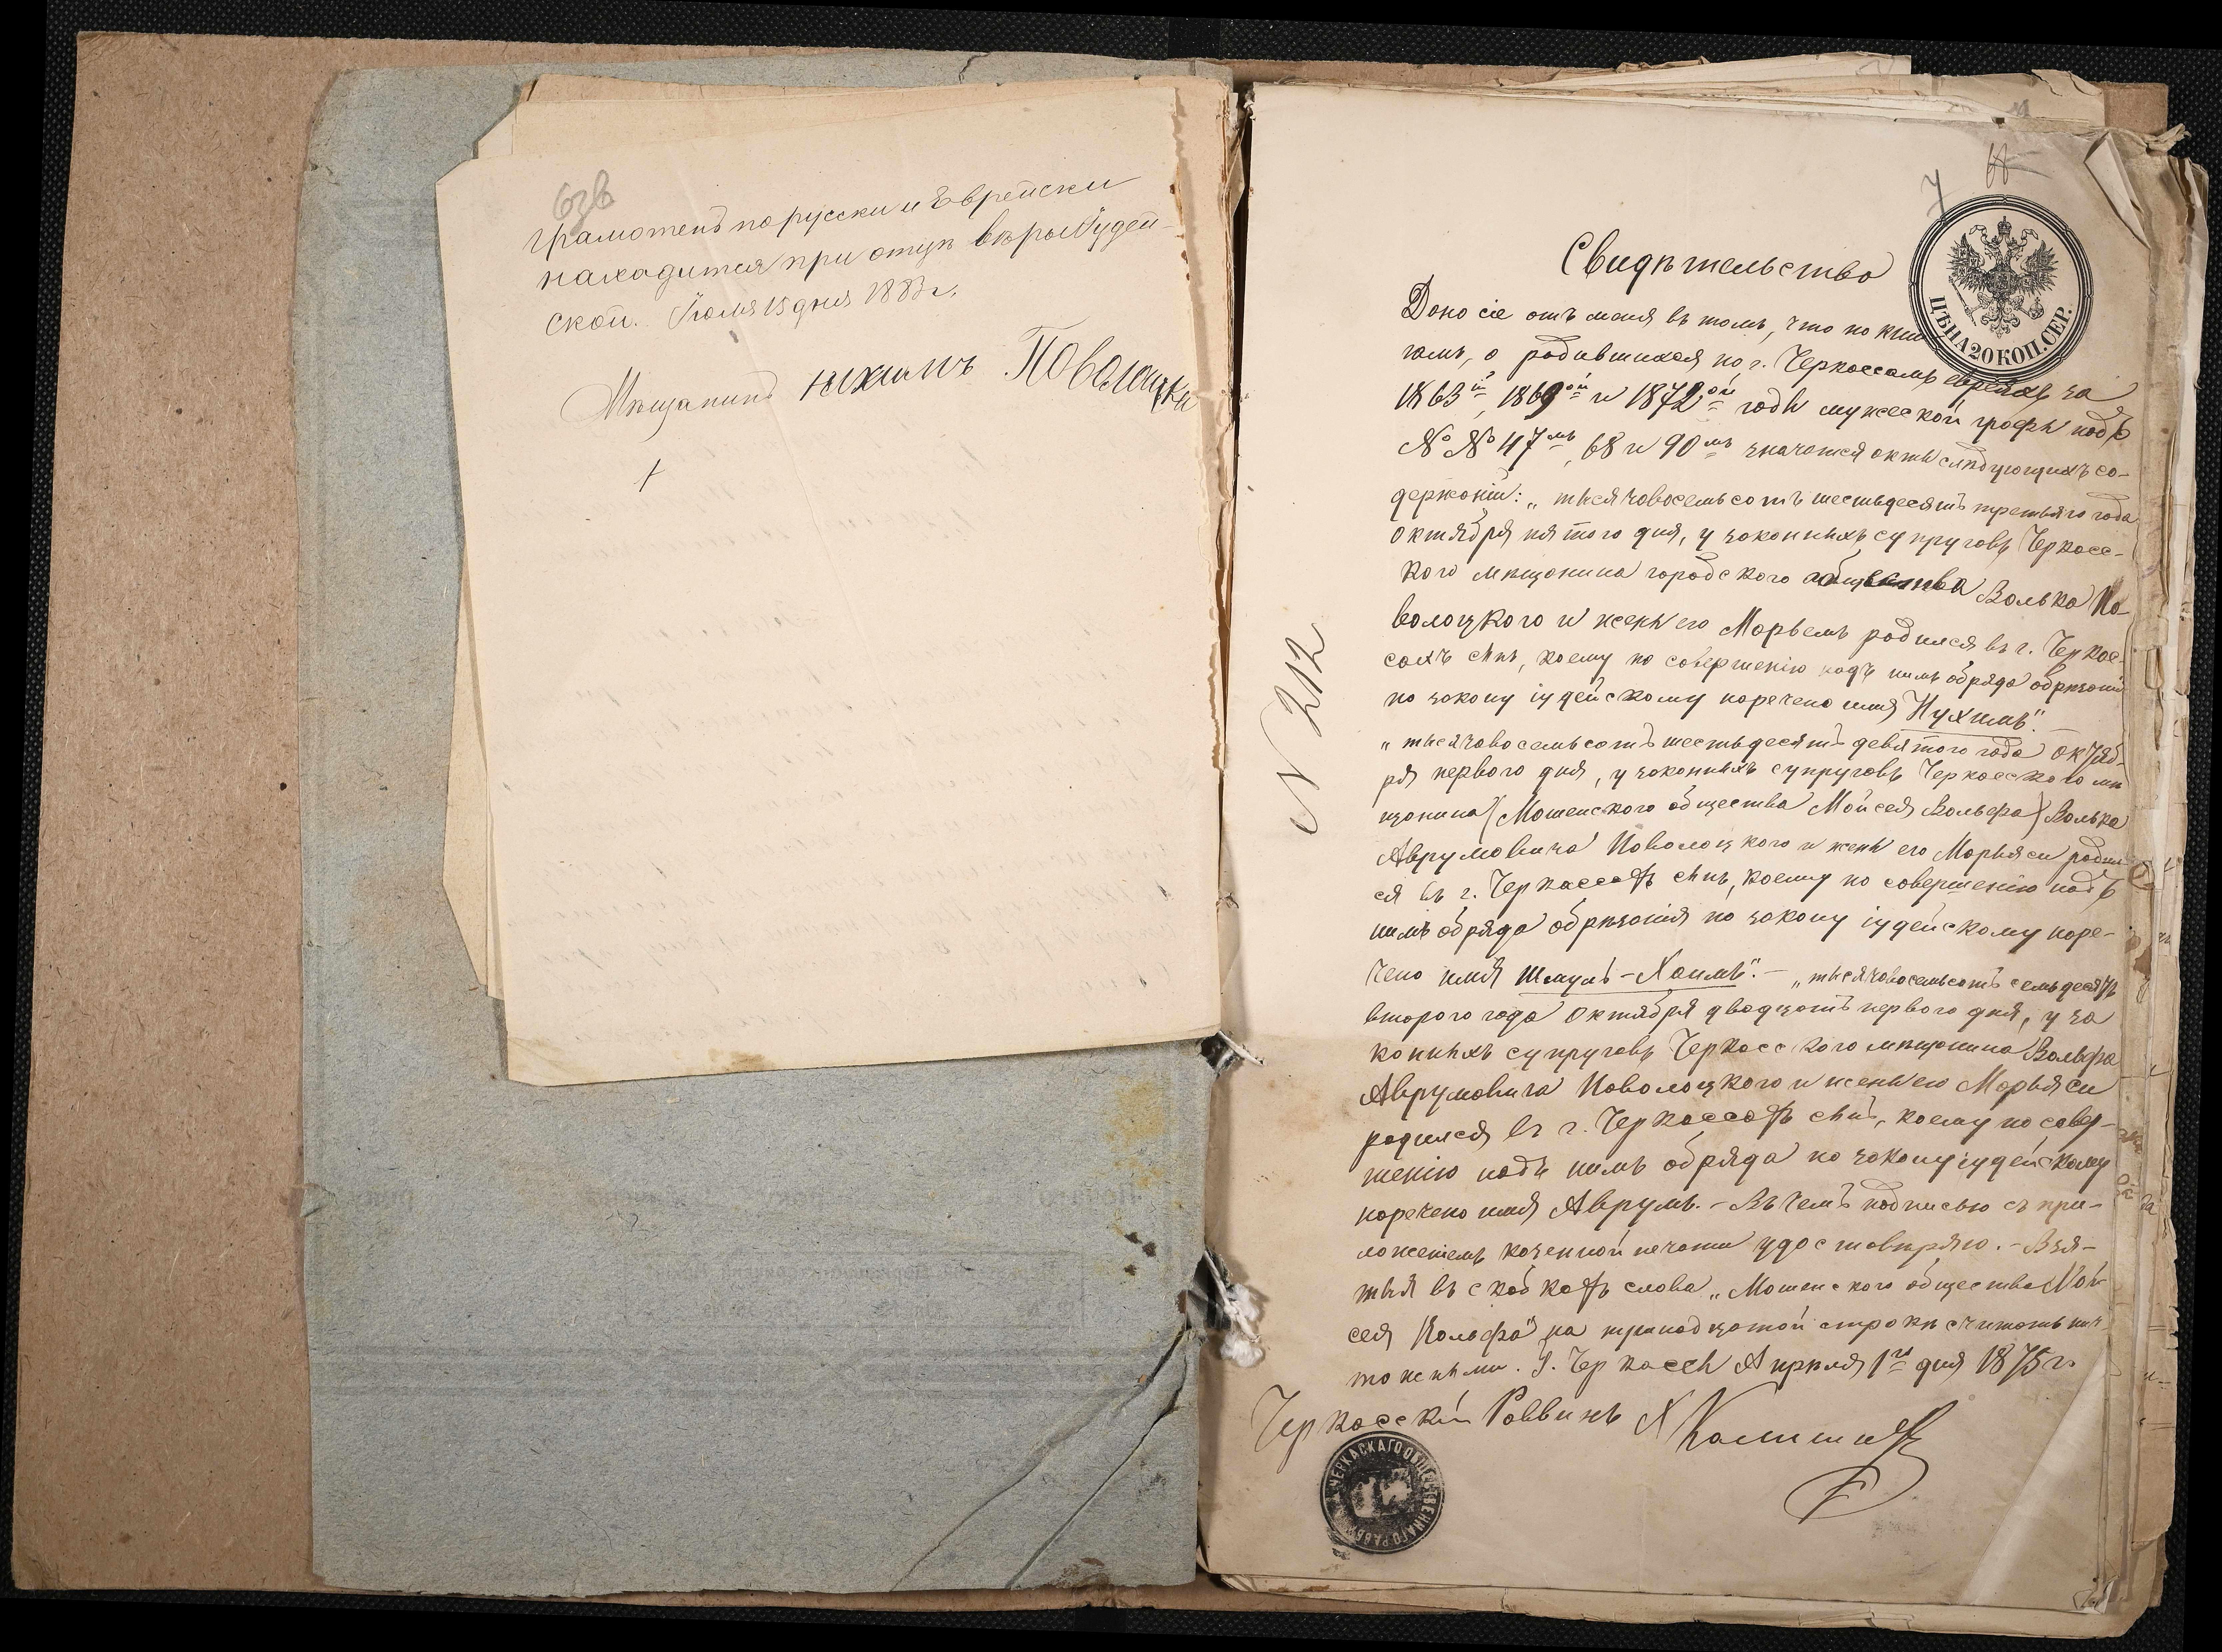 63в
грамотенъ порусски и Еврейски
находится при отцѣ вѣры Іудей-
ской. Іюля 15 дня 1883 г.
Мѣщанинъ Нихимъ Поволоцки
7
Свидѣтельство
ЦѢНА 20 КОП. СЕР.
Дано сіе отъ меня въ томъ, что по кни
гамъ, о родившихся по г. Черкассамъ евреяхъ за
1863й, 1869ой и 1872ой годы мужеской графы подъ
№ № 47мъ, 68 и 90мъ значатся акты слѣдующихъ со-
держаній: „тысячавосемьсотъ шестьдесятъ третьяго года
Октября пятого дня, у законныхъ супруговъ Черкасс-
кого мѣщанина городского общества Волька По-
волоцкого и жены его Марьемъ родился въ г. Черкас-
сахъ сынъ, коему по совершенію надъ нимъ обряда обрѣзанія
по закону іудейскому наречено имя Нухимъ".
„тысячавосемьсотъ шестьдесятъ девятого года Октяб-
ря первого дня, у законныхъ супруговъ Черкасского мѣ
щанина (Мошенского общества Мойсея Вольфа) Волька
Аврумовича Поволоцкого и жены его Марьяси родил
ся въ г. Черкассахъ сынъ, коему по совершенію надъ
нимъ обряда обрѣзанія по закону іудейскому наре-
чено имя Шмуль-Хаимъ". – „тысячавосемьсотъ семьдесятъ
второго года Октября двадцать первого дня, у за
конныхъ супруговъ Черкасского мѣщанина Вольфа
Аврумовича Поволоцкого и жены его Марьяси
родился въ г. Черкассахъ сынъ, коему по совер-
шенію надъ нимъ обряда по закону іудейскому
наречено имя Аврумъ. – Въ чемъ подписью съ при-
ложеніемъ казенной печати удостовѣряю. – Взя-
тыя въ скобкахъ слова „Мошенского общества Мой-
сея Вольфа" на тринадцатой строкѣ считать нич
тожными. Г. Черкассы Апрѣля 1го дня 1875 г.
Черкасскій Раввинъ
ЧЕРКАСКАГО ОБЩЕСТВЕННАГО РАВВ
N 212